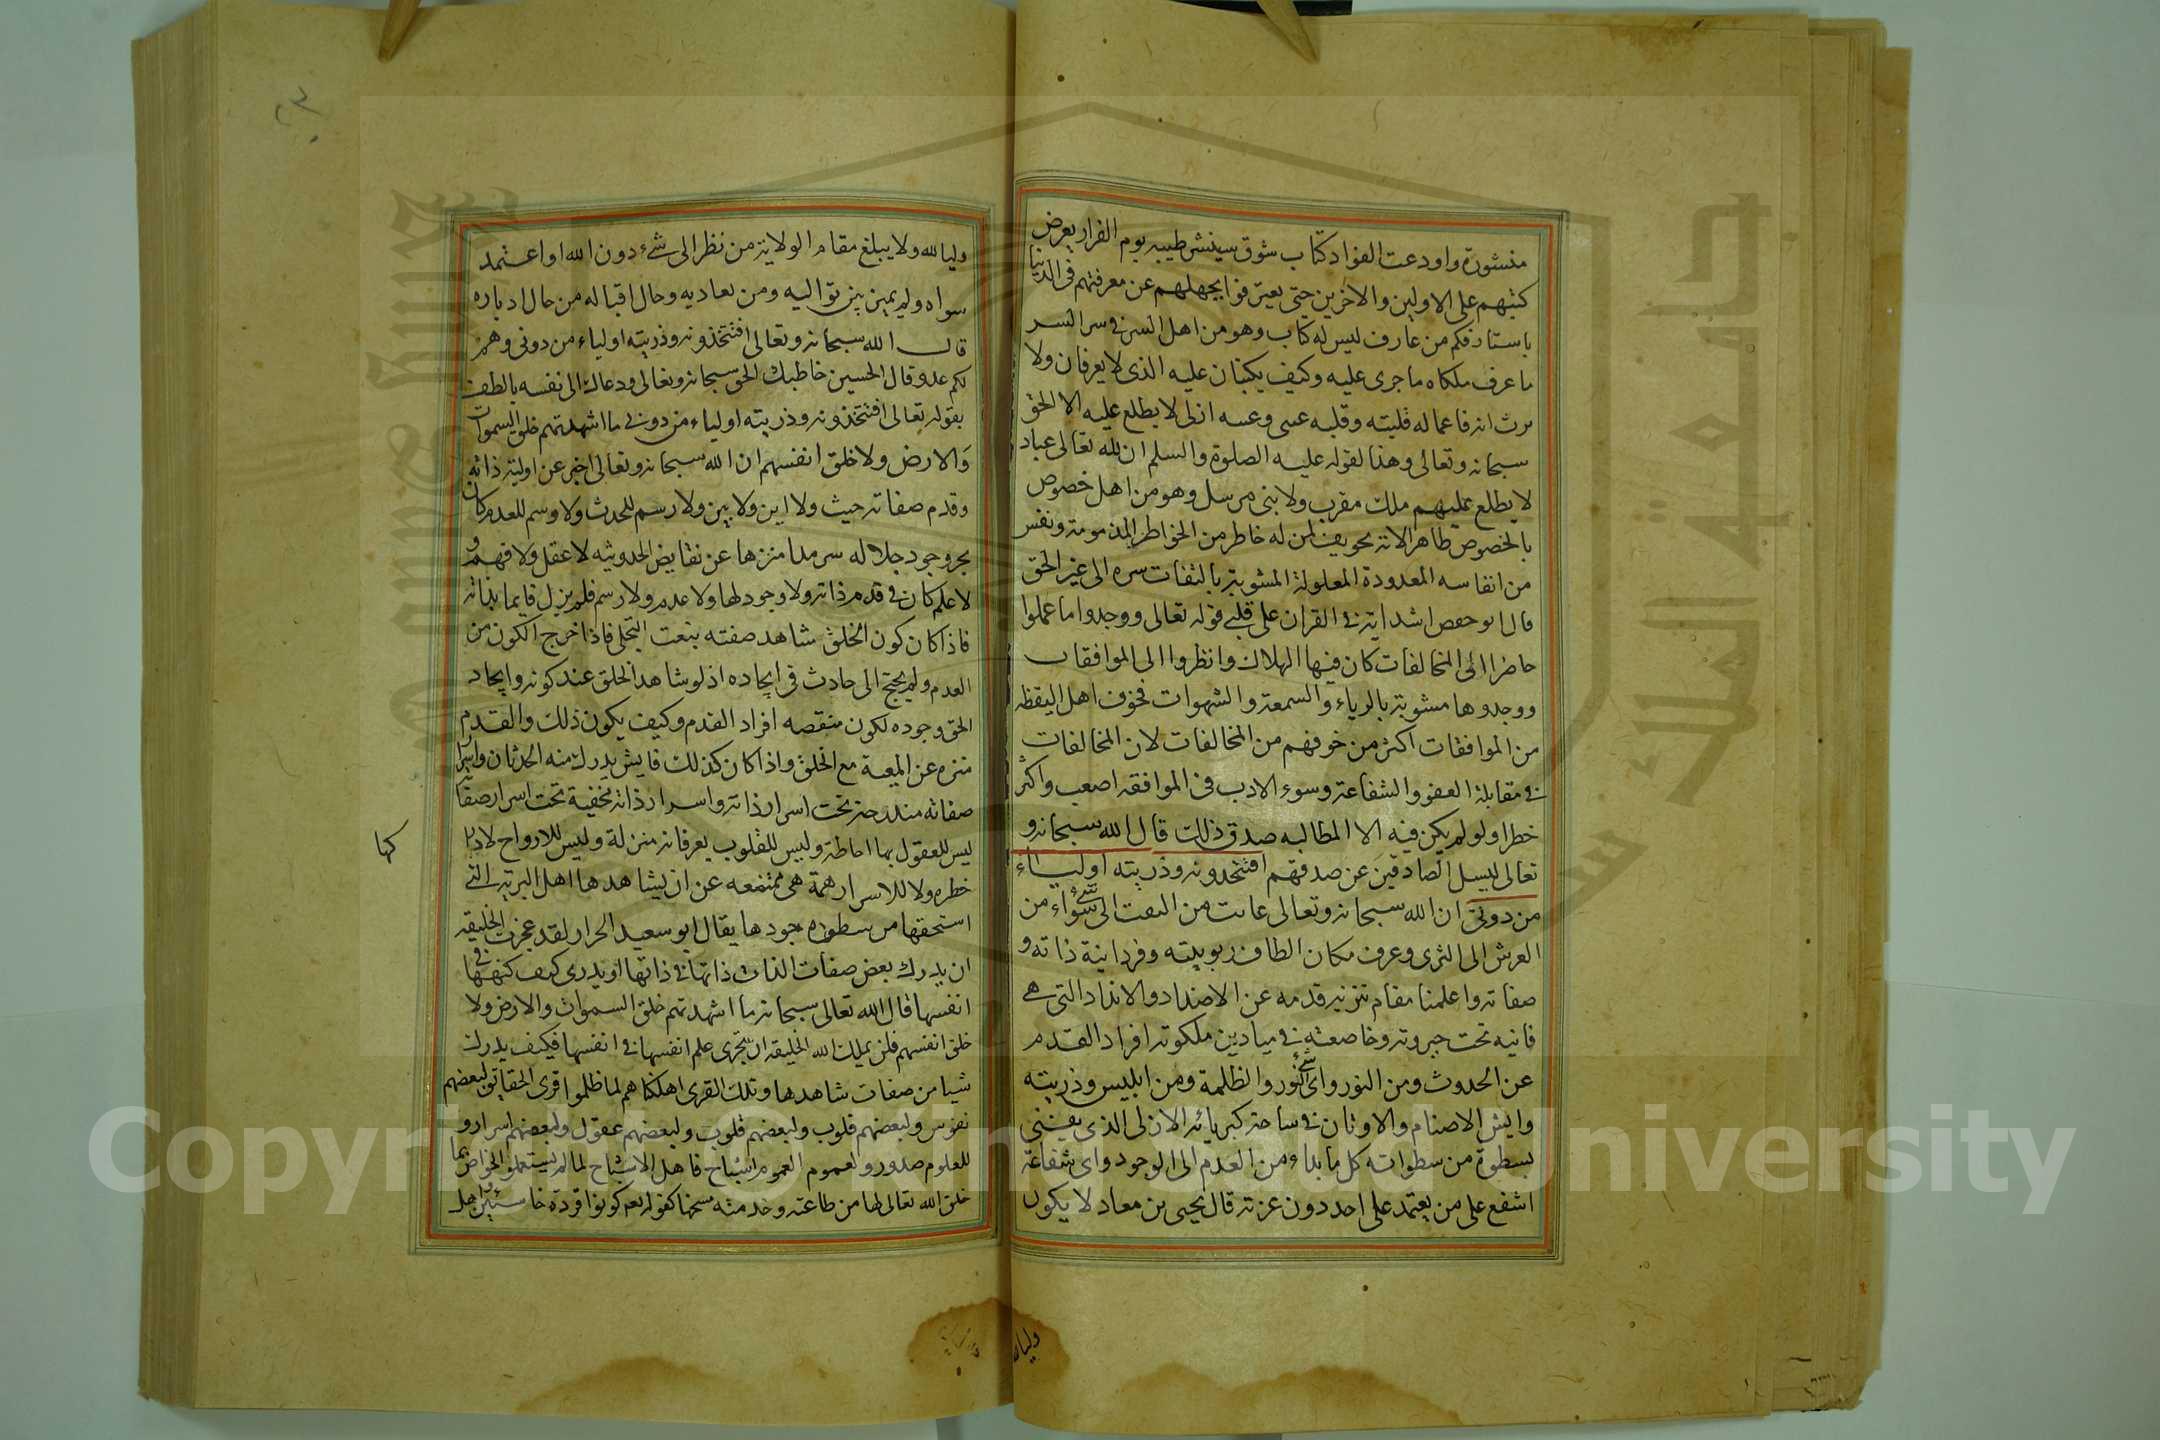 منشورة واودعت الفواد كتاب شوق سينشر طيبه يوم القرار يعرض
كتبهم على الاولين والاخرين حتى يعترفوا بجهلهم عن معرفتهم فى الدنيا
باستار فكم من عارف ليس له كتاب وهو من اهل السر فى سر السر
ما عرف ملكاه ما جرى عليه وكيف يكتبان عليه الذى لا يعرفان ولا
فاعماله قلبيته وقلبه ازلى لا يطلع عليه الا الحق
سبحانه وتعالى وهذا لقوله عليه الصلوة والسلم ان لله تعالى عباد
لا يطلع عليهم ملك مقرب ولا نبى مرسل وهو من اهل خصوص
بالخصوص ظاهر الاية تخويف لمن له خاطر من الخواطر المذمومة ونفس
من انفاسه المعدودة المعلولة المشوبة بالتفات سره الى غير الحق
قال ابو حفص اشد اية فى القران على قلبى قوله تعالى ووجدوا ما عملوا
حاضرا الى المخالفات كان فيها الهلاك وانظروا الى الموافقات
ووجدوها مشوبة بالرياء والسمعة والشهوات فخوف اهل اليقظه
من الموافقات اكثر من خوفهم من المخالفات لان المخالفات
فى مقابلة العفو والشفاعة وسوء الادب فى الموافقه اصعب واكثر
خطرا ولو لم يكن فيه الا المطالبه صدق ذلك قال الله سبحانه و
تعالى ليسل الصادقين عن صدقهم افتتخذونه وذريته اولياء
من دونى ان الله سبحانه وتعالى عاتب من التفت الى شىء سواه من
العرش الى الثرى وعرف مكان الطاف ربوبيته وفردانية ذاته و
صفاته واعلمنا مقام تنزيه قدمه عن الاضداد والانداد التى هى
فانيه تحت جبروته وخاضعة فى ميادين ملكوته افراد القدم
عن الحدوث ومن النور واى شىء النور والظلمة ومن ابليس وذريته
وايش الاصنام والاوثان فى ساحة كبريائه الازلى الذى يفنى
بسطوة من سطواته كل ما بداء من العدم الى الوجود واى شفاعة
اشفع على من يعتمد على احد دون عزته قال يحيى بن معاد لا يكون
وليالله
وليا لله ولا يبلغ مقام الولاية من نظر الى شىء دون الله او اعتمد
سواه ولم يميز بين تواليه ومن يعاديه وحال اقباله من حال ادباره
قال الله سبحانه وتعالى افتتخذونه وذريته اولياء من دونى وهم
لكم عدو قال الحسين خاطبك الحق سبحانه وتعالى ودعاك الى نفسه بالطف
بقوله تعالى افتتخذونه وذريته اولياء من دونى ما اشهدتهم خلق السموات
والارض ولا خلق انفسهم ان الله سبحانه وتعالى اخبر عن اولية ذاته
وقدم صفاته حيث ولا اين ولا بين ولا رسم للحدث ولا وسم للعدم كان
وجود جلاله سرمدا منزها عن نقايض الحدوثيه لا عقل ولا فهم و
لا علم كان فى قدم ذاته ولا وجود لها ولا عدم ولا رسم فلم يزل قايما بذاته
فاذا كان كون الخلق شاهد صفته بنعت التجلى فاذا خرج الكون من
العدم ولم يحتج الى حادث فى ايجاده اذ لو شاهد الخلق عند كونه وايجاد
الحق وجوده لكون منقصه افراد القدم وكيف يكون ذلك والقدم
منزه عن المعية مع الخلق واذا كان كذلك فايش يدرك منه الحدثان واسرار
صفاته مندرجة تحت اسرار ذاته واسرار ذاته مخفية تحت اسرار صفاته
ليس للعقول بها احاطة وليس للقلوب بعرفانه منزلة وليس للارواح
خطره ولا للاسرار همة هى ممتنعه عن ان يشاهدها اهل البرية التى
استحقها من سطوة وجودها يقال ابو سعيد الخراز لقد عجزت الخليقه
ان يدرك بعض صفات الذات ذاتها فى ذاتها او يدرى كيف كنهها فى
انفسها قال الله تعالى سبحانه ما اشهدتهم خلق السموات والارض ولا
خلق انفسهم فلن يملك الله الخليقه ان تجرى علم انفسها فى انفسها فكيف يدرك
شيا من صفات شاهدها وتلك القرى اهلكناهم لما ظلموا قرى الحقايق لبعضهم
نفوس ولبعضهم قلوب ولبعضهم قلوب ولبعضهم عقول ولبعضهم اسرار و
للعلوم صدور ولعموم العموم اشباح فاهل الاشباح لما لم يستعملوا الخواص بما
خلق الله تعالى لها من طاعته وخدمته مسخها كقوله لهم كونوا قردة خاسئين
كها